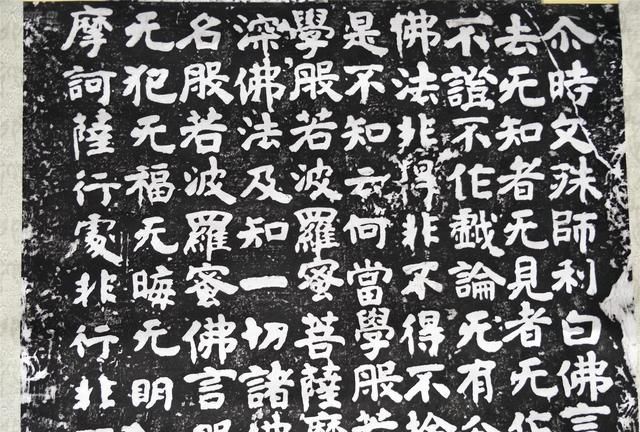 尒時文殊師利白佛言
去无知者无見者无作
不證不作戲論无有分
佛法非得非不得不捨
是不知云何當學般若
學般若波羅蜜菩薩摩
深佛法及知一切諸佛
名般若波羅蜜佛言般
无犯无福无晦无明
摩訶薩行處非行非